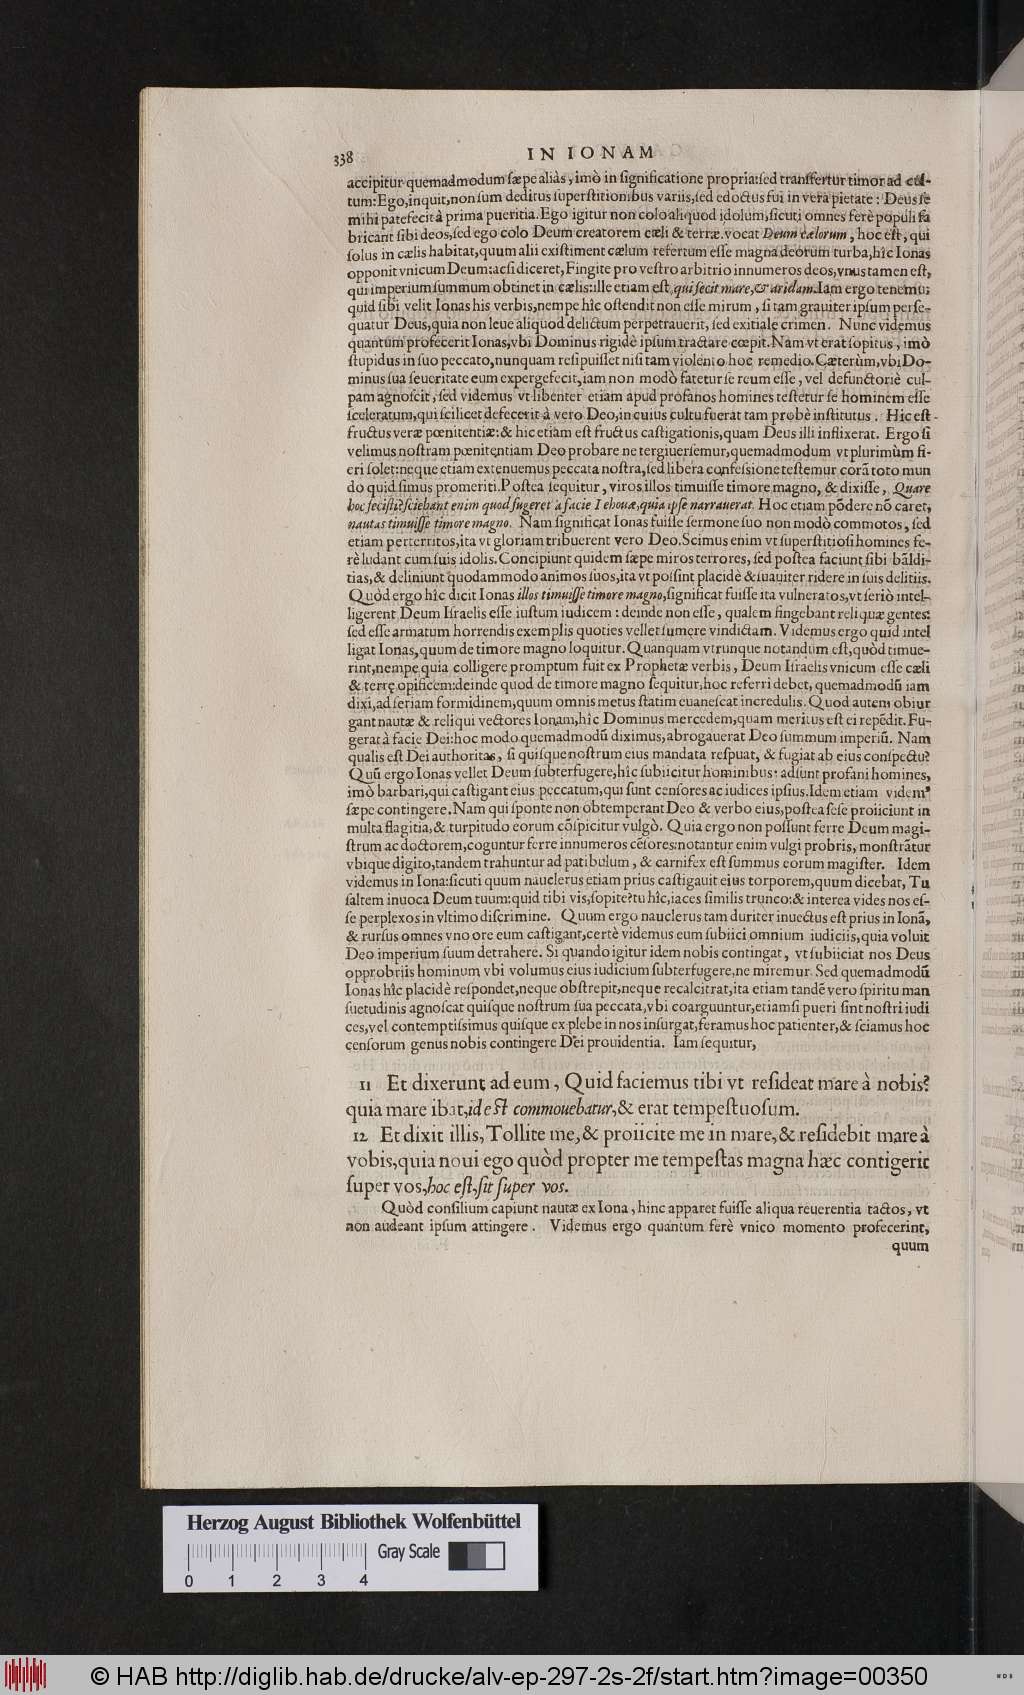 338 IN IONAM
accipitur quemadmodum sæpe aliàs, imò in significatione propria: sed transfertur timor ad cul-
tum: Ego, inquit, non sum deditus superstitionibus variis, sed edoctus fui in vera pietate: Deus se
mihi patefecit à prima pueritia. Ego igitur non colo aliquod idolum, sicuti omnes ferè populi fa
bricant sibi deos, sed ego colo Deum creatorem cæli & terræ. vocat Deum cælorum, hoc est, qui
solus in cælis habitat, quum alii existiment cælum refertum esse magna deorum turba, hîc Ionas
opponit vnicum Deum: acsi diceret, Fingite pro vestro arbitrio innumeros deos, vnus tamen est,
qui imperium summum obtinet in cælis: ille etiam est, qui fecit mare, & aridam. Iam ergo tenemus
quid sibi velit Ionas his verbis, nempe hîc ostendit non esse mirum, si tam grauiter ipsum perse-
quatur Deus, quia non leue aliquod delictum perpetrauerit, sed exitiale crimen. Nunc videmus
quantum profecerit Ionas, vbi Dominus rigidè ipsum tractare cœpit. Nam vt erat sopitus, imò
stupidus in suo peccato, nunquam resipuisset nisi tam violento hoc remedio. Cæterùm, vbi Do-
minus sua seueritate eum expergefecit, iam non modò fatetur se reum esse, vel defunctoriè cul-
pam agnoscit, sed videmus vt libenter etiam apud profanos homines testetur se hominem esse
sceleratum, qui scilicet defecerit à vero Deo, in cuius cultu fuerat tam probè institutus. Hic est
fructus veræ pœnitentiæ: & hic etiam est fructus castigationis, quam Deus illi inflixerat. Ergo si
velimus nostram pœnitentiam Deo probare ne tergiuersemur, quemadmodum vt plurimùm fi-
eri solet: neque etiam extenuemus peccata nostra, sed libera confessione testemur corã toto mun
do quid simus promeriti. Postea sequitur, viros illos timuisse timore magno, & dixisse, Quare
hoc fecisti? sciebant enim quod fugeret à facie Iehouæ, quia ipse narrauerat. Hoc etiam põdere nõ caret,
nautas timuisse timore magno. Nam significat Ionas fuisse sermone suo non modò commotos, sed
etiam perterritos, ita vt gloriam tribuerent vero Deo. Scimus enim vt superstitiosi homines fe-
rè ludant cum suis idolis. Concipiunt quidem sæpe miros terrores, sed postea faciunt sibi bãldi-
tias, & deliniunt quodammodo animos suos, ita vt possint placidè & suauiter ridere in suis delitiis.
Quòd ergo hîc dicit Ionas illos timuisse timore magno, significat fuisse ita vulneratos, vt seriò intel-
ligerent Deum Israelis esse iustum iudicem: deinde non esse, qualem fingebant reliquæ gentes:
sed esse armatum horrendis exemplis quoties vellet sumere vindictam. Videmus ergo quid intel
ligat Ionas, quum de timore magno loquitur. Quanquam vtrunque notandum est, quòd timue-
rint, nempe quia colligere promptum fuit ex Prophetæ verbis, Deum Israelis vnicum esse cæli
& terrę opificem: deinde quod de timore magno sequitur, hoc referri debet, quemadmodũ iam
dixi, ad seriam formidinem, quum omnis metus statim euanescat incredulis. Quod autem obiur
gant nautæ & reliqui vectores Ionam, hîc Dominus mercedem, quam meritus est ei repẽdit. Fu-
gerat à facie Dei: hoc modo quemadmodũ diximus, abrogauerat Deo summum imperiũ. Nam
qualis est Dei authoritas, si quisque nostrum eius mandata respuat, & fugiat ab eius conspectu?
Quũ ergo Ionas vellet Deum subterfugere, hîc subiicitur hominibus: adsunt profani homines,
imò barbari, qui castigant eius peccatum, qui sunt censores ac iudices ipsius. Idem etiam videmꝰ
sæpe contingere. Nam qui sponte non obtemperant Deo & verbo eius, postea sese proiiciunt in
multa flagitia, & turpitudo eorum cõspicitur vulgò. Quia ergo non possunt ferre Deum magi-
strum ac doctorem, coguntur ferre innumeros cẽsores: notantur enim vulgi probris, monstrãtur
vbique digito, tandem trahuntur ad patibulum, & carnifex est summus eorum magister. Idem
videmus in Iona: sicuti quum nauclerus etiam prius castigauit eius torporem, quum dicebat, Tu
saltem inuoca Deum tuum: quid tibi vis, sopite? tu hîc, iaces similis trunco: & interea vides nos es-
se perplexos in vltimo discrimine. Quum ergo nauclerus tam duriter inuectus est prius in Ionã,
& rursus omnes vno ore eum castigant, certè videmus eum subiici omnium iudiciis, quia voluit
Deo imperium suum detrahere. Si quando igitur idem nobis contingat, vt subiiciat nos Deus
opprobriis hominum, vbi volumus eius iudicium subterfugere, ne miremur. Sed quemadmodũ
Ionas hîc placidè respondet, neque obstrepit, neque recalcitrat, ita etiam tandẽ vero spiritu man
suetudinis agnoscat quisque nostrum sua peccata, vbi coarguuntur, etiamsi pueri sint nostri iudi
ces, vel contemptissimus quisque ex plebe in nos insurgat, feramus hoc patienter, & sciamus hoc
censorum genus nobis contingere Dei prouidentia. Iam sequitur,
11 Et dixerunt ad eum, Quid faciemus tibi vt resideat mare à nobis?
quia mare ibat, id est commouebatur, & erat tempestuosum.
12 Et dixit illis, Tollite me, & proiicite me in mare, & residebit mare à
vobis, quia noui ego quòd propter me tempestas magna hæc contigerit
super vos, hoc est, sit super vos.
Quòd consilium capiunt nautæ ex Iona, hinc apparet fuisse aliqua reuerentia tactos, vt
non audeant ipsum attingere. Videmus ergo quantum ferè vnico momento profecerint,
quum
Herzog August Bibliothek Wolfenbüttel
Gray Scale
0 1 2 3 4
© HAB http://diglib.hab.de/drucke/alv-ep-297-2s-2f/start.htm?image=00350